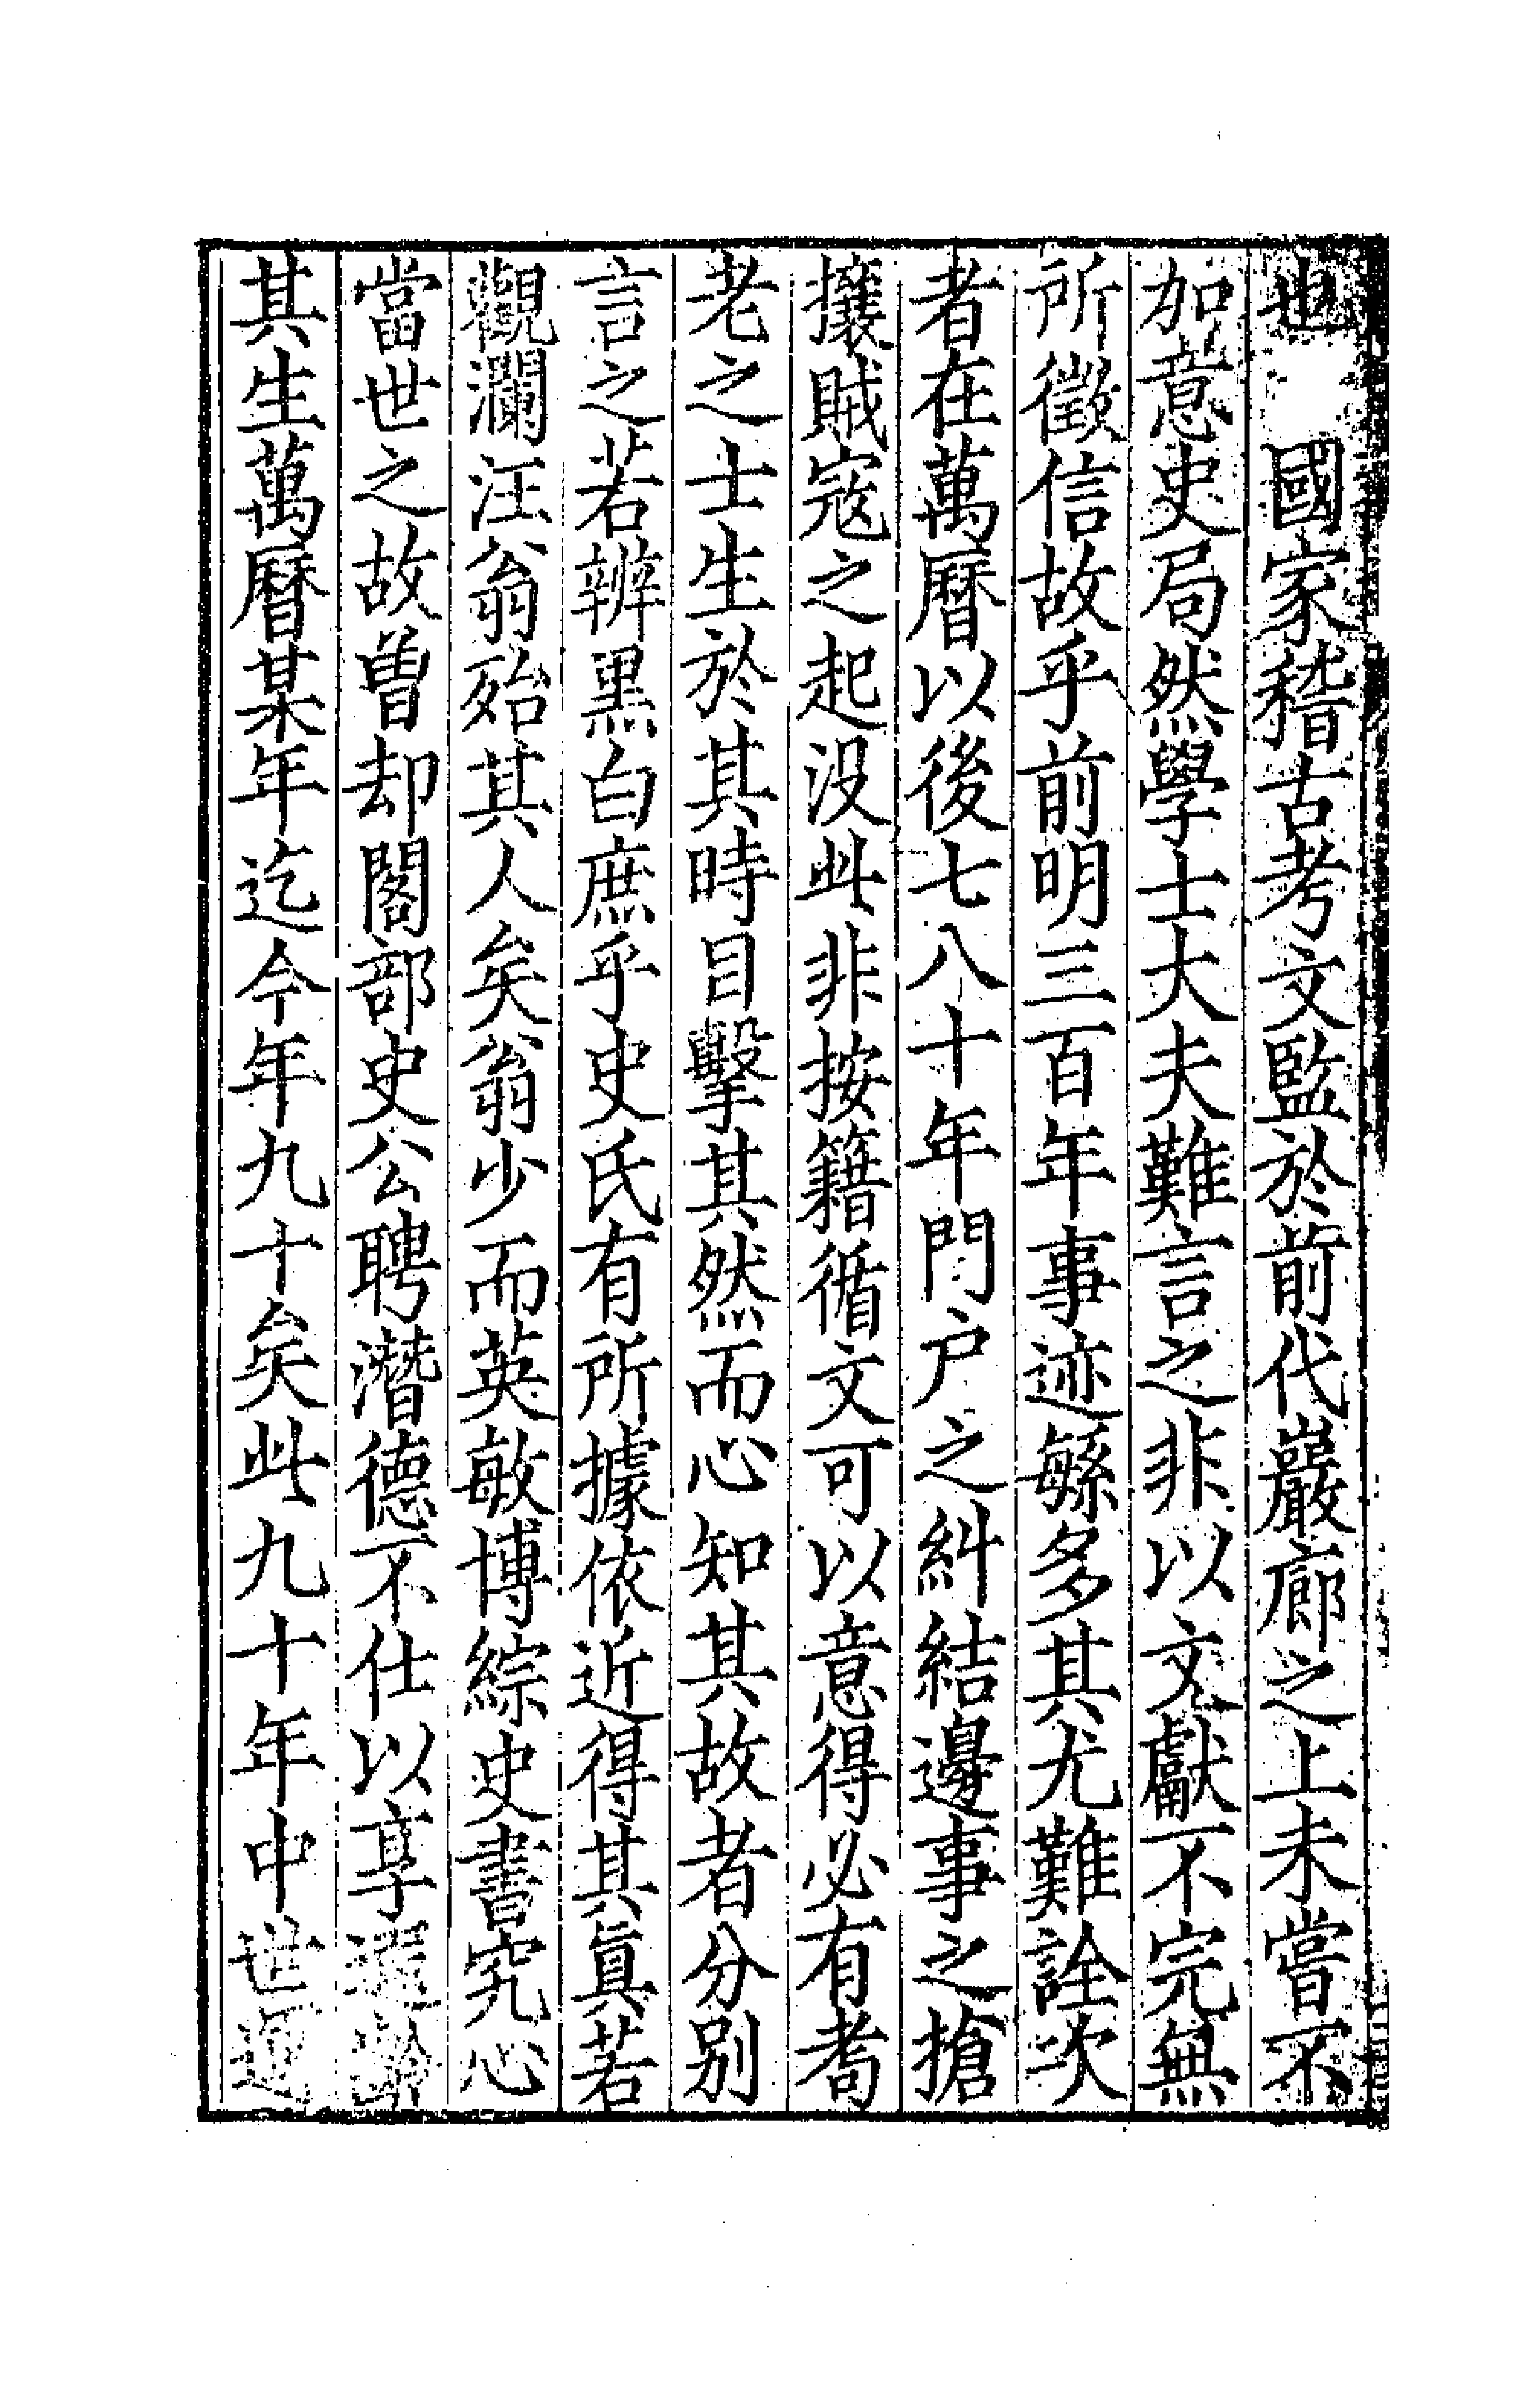 也　國家稽古考文監於前代巖廊之上未嘗不
加意史局然學士大夫難言之非以文獻不完無
所徵信故乎前明三百年事迹繇多其尤難詮次
者在萬曆以後七八十年門户之糾結邊事之搶
攘賊寇之起没此非按籍循文可以意得必有耇
老之士生於其時目擊其然而心知其故者分别
言之若辨黒白庶乎史氏有所據依近得其眞若
觀瀾汪翁殆其人矣翁少而英敏博綜史書究心
當世之故曽却閣部史公聘潛德不仕以享遐齡
其生萬曆某年迄今年九十矣此九十年中世運